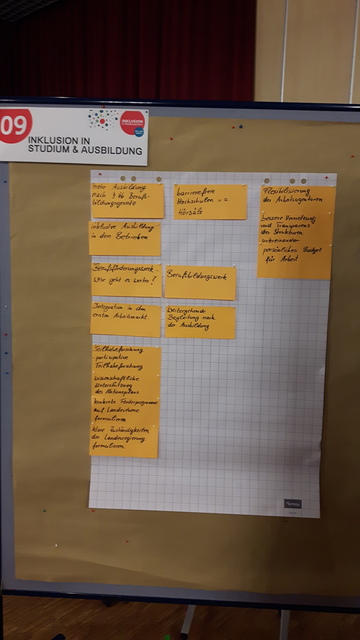 09
INKLUSION
INKLUSION IN
STUDIUM & AUSBILDUNG
mehr Ausbildung
nach § 66 Berufs-
bildungsgesetz
barrierefreie
Hochschulen
Hörsäle
Flexibilisierung
der Arbeitsagenturen
bessere Vernetzung
und Transparenz
der Strukturen
untereinander
persönliches Budget
für Arbeit
inklusive Ausbildung
in den Betrieben
Berufsförderungswerk -
wie geht es weiter?
Berufsbildungswerk
Integration in den
ersten Arbeitsmarkt
Weitergehende
Begleitung nach
der Ausbildung
Teilhabeforschung
partizipative
Teilhabeforschung
wissenschaftliche
Unterstützung
des Aktionsplans
konkrete Förderprogramme
auf Landesebene
formulieren
klare Zuständigkeiten
der Landesregierung
formulieren